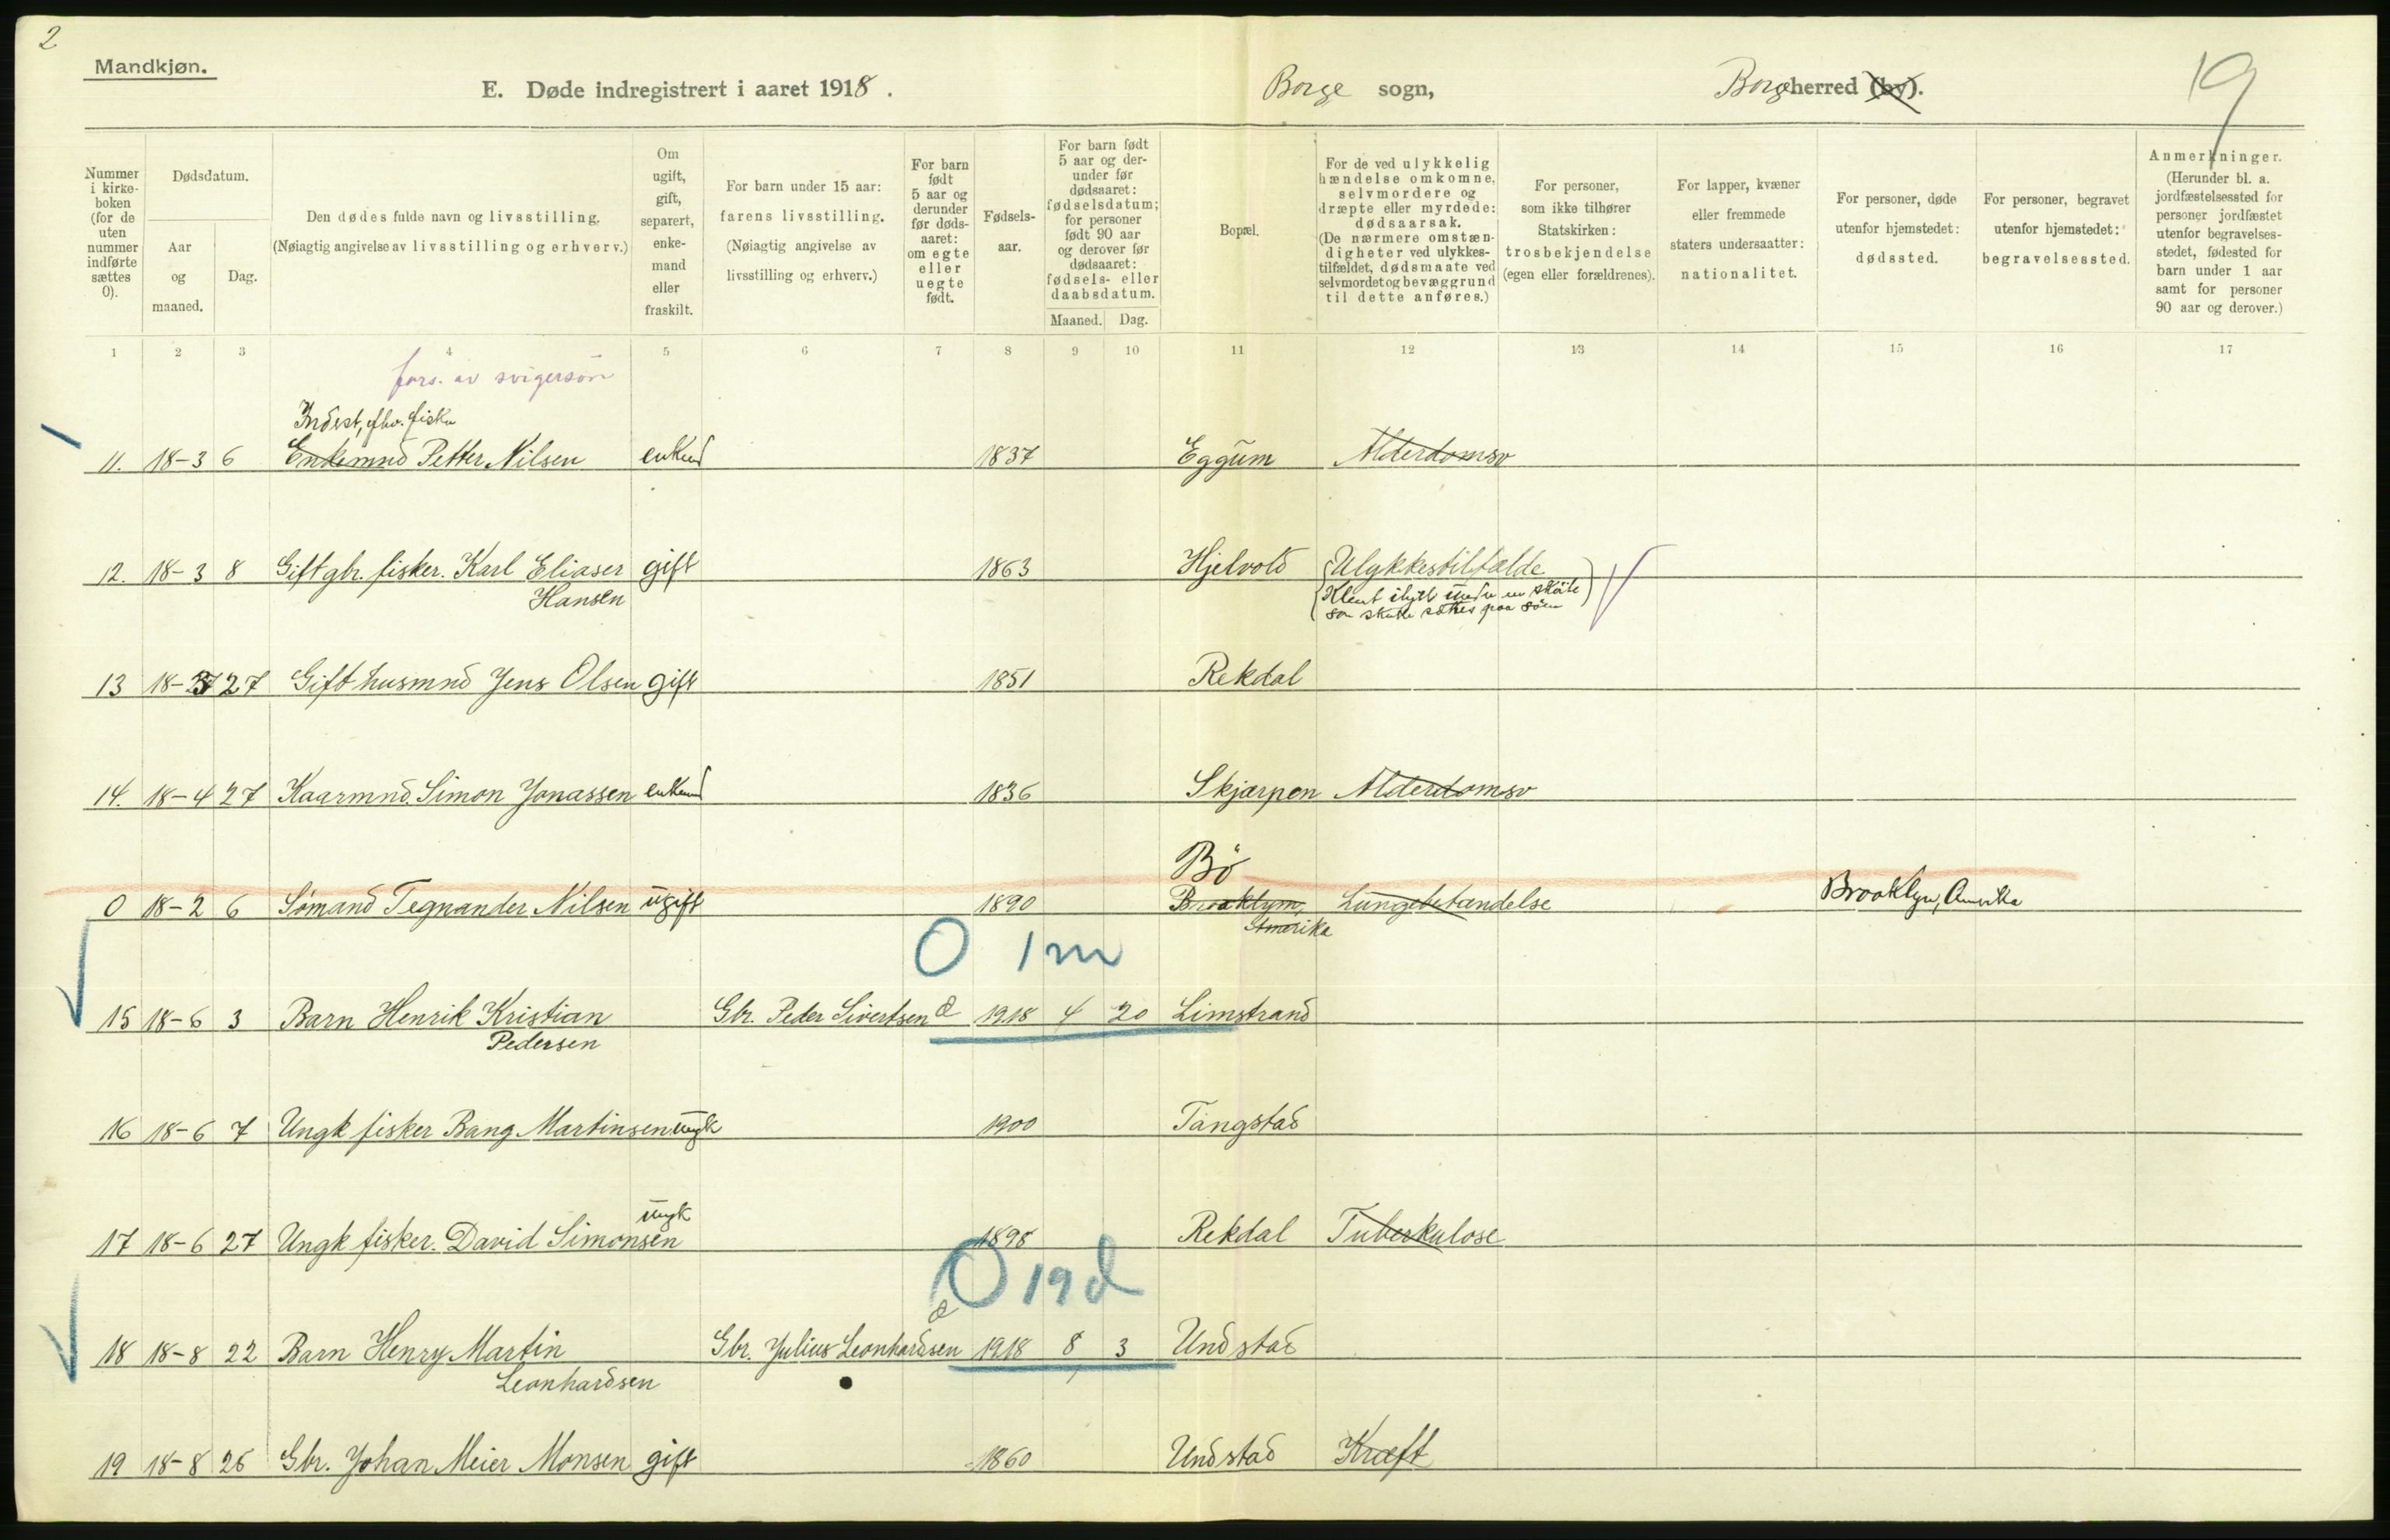 2
Mandkjøn.
E. Døde indregistrert i aaret 1918.
Borge sogn,
Borge herred (by).
19
Nummer i kirkeboken (for de uten nummer indførte sættes 0).
Dødsdatum.
Aar og maaned.
Dag.
Den dødes fulde navn og livsstilling.
(Nøiagtig angivelse av livsstilling og erhverv.)
Om ugift, gift, separert, enkemand eller fraskilt.
For barn under 15 aar: farens livsstilling.
(Nøiagtig angivelse av livsstilling og erhverv.)
For barn født 5 aar og derunder før dødsaaret: om egte eller uegte født.
Fødselsaar.
For barn født 5 aar og derunder før dødsaaret: fødselsdatum; for personer født 90 aar og derover før dødsaaret: fødsels- eller daabsdatum.
Maaned. Dag.
Bopæl.
For de ved ulykkelig hændelse omkomne, selvmordere og dræpte eller myrdede: dødsaarsak.
(De nærmere omstændigheter ved ulykkestilfældet, dødsmaate ved selvmordet og bevæggrund til dette anføres.)
For personer, som ikke tilhører Statskirken: trosbekjendelse (egen eller forældrenes).
For lapper, kvæner eller fremmede staters undersaatter: nationalitet.
For personer, døde utenfor hjemstedet: dødssted.
For personer, begravet utenfor hjemstedet: begravelsessted.
Anmerkninger.
(Herunder bl. a. jordfæstelsessted for personer jordfæstet utenfor begravelsesstedet, fødested for barn under 1 aar samt for personer 90 aar og derover.)
1 2 3 4 5 6 7 8 9 10 11 12 13 14 15 16 17
fors. av svigersøn
Inderst, fhv. fisker
11. 18-3 6 Enkemnd Petter Nilsen enkmd 1837 Eggum Alderdomsv
12. 18-3 8 Gift gbr. fisker. Karl Eliaser gift 1863 Hjelvold Ulykkestilfælde
Hansen
(Klemt ihjel under en skøite
som skulde sættes paa sjøen)
13 18-3 27 Gift husmnd Jens Olsen gift 1851 Rekdal
14. 18-4 27 Kaarmnd. Simon Jonassen enkemd 1836 Skjærpen Alderdomsv
Bø
0 18-2 6 Sømand Tegnander Nilsen ugift 1890 Brooklym, Lungebetændelse Brooklyn, Amerika
Amerika
0 1 m
15 18-6 3 Barn Henrik Kristian Gbr. Peder Sivertsen e 1918 4 20 Limstrand
Pedersen
16 18-6 7 Ungk fisker Bang Martinsen ungk 1900 Tangstad
ungk
17 18-6 27 Ungk fisker. David Simonsen 1898 Rekdal Tuberkulose
0 19 d
e
18 18-8 22 Barn Henry Martin Gbr. Julius Leonhardsen 1918 8 3 Undstad
Leonhardsen
19 18-8 26 Gbr. Johan Meier Monsen gift 1860 Undstad Kræft